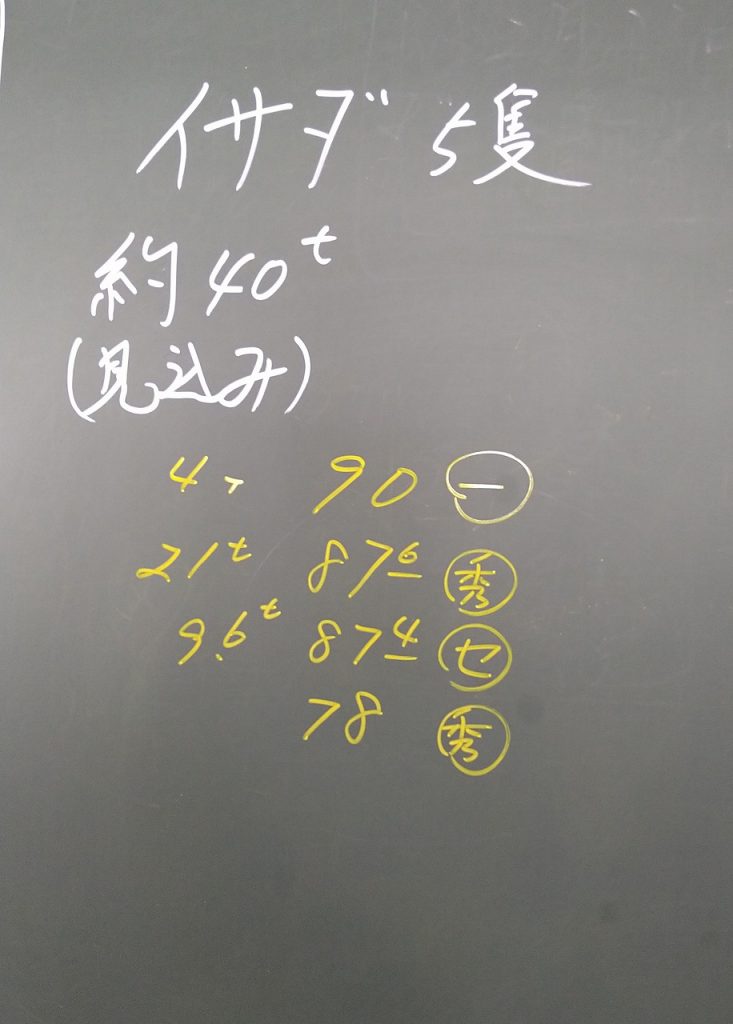 イサダ 5隻
約40t
(見込み)
4t 90 ㊀
21t 876 秀
9.6t 874 セ
78 秀